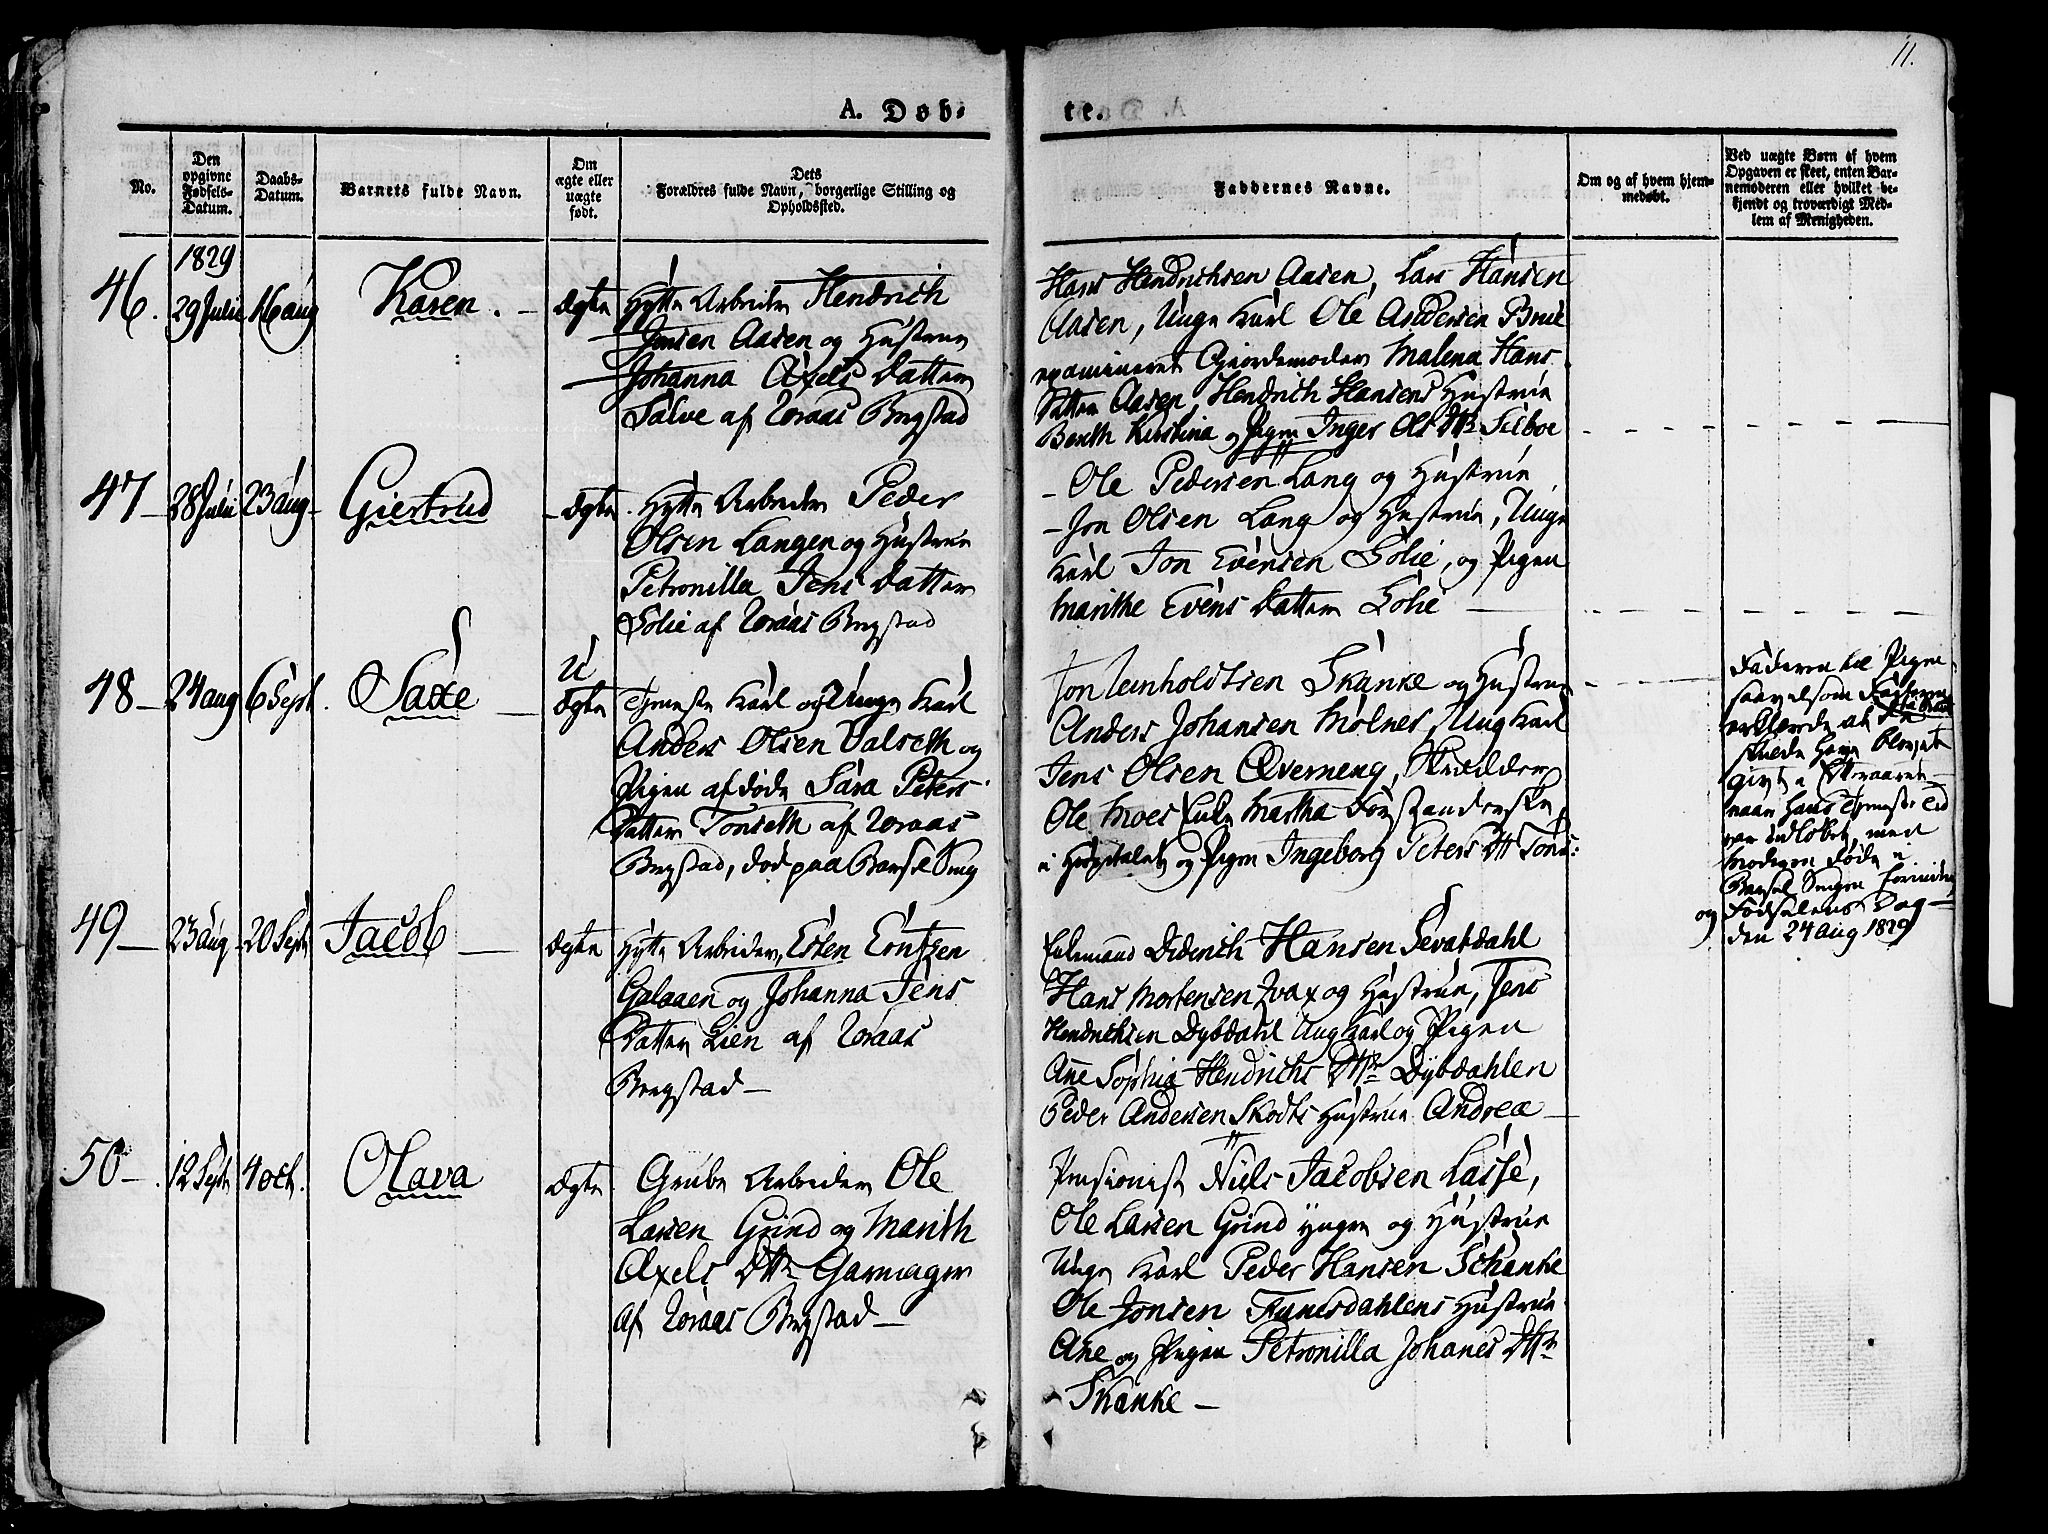 11.
A. Døb-
te.
No.
Den
opgivne
Fødsels-
Datum.
Daabs-
Datum.
Barnets fulde Navn.
Om
ægte eller
uægte
født.
Dets
Forældres fulde Navn, borgerlige Stilling og
Opholdssted.
Faddernes Navne.
Om og af hvem hjem-
medøbt.
Ved uægte Børn af hvem
Opgaven er skeet, enten Bar-
nemoderen eller hvilket be-
kjendt og troværdigt Med-
lem af Menigheden.
1829
46.
29 Julii
16 aug
Karen.
Ægte
Hytte Arbeider Hendrich
Jensen Aasen og Hustrue
Johanna Axels Datter
Salve af Røraas Bergstad
Hans Hendrichsen Aasen, Lars Hansen
Aasen, Unge Karl Ole Andersen Brue
examineret Gjordemoder Malena Hans
Datter Aasen, Hendrich Hansens Hustrue
Bereth Kirstina og Pigen Inger Ols Dtr Feboe
47
28 Julii
23 aug
Giertrud
Ægte
Hytte Arbeider Peder
Olsen Langen og Hustrue
Petronilla Jens Datter
Solie af Røraas Bergstad
Ole Pedersen Lang og Hustrue
Jon Olsen Lang og Hustrue, Unge
Karl Jon Evensen Solie, og Pigen
Marithe Evens Datter Solie
48
24 aug
6 Sept.
Saxe
U
Ægte
Tjeneste Karl og Unge Karl
Anders Olsen Valseth og
Pigen afdøde Sara Peters
Datter Tonseth af Røraas
Bergstad, død paa Barsel Seng
Jon Reinholdtsen Skanke og Hustrue
Anders Johansen Molnes, Ung Karl
Jens Olsen Øverneng, Skrædder
Ole Moes Enke Martha Forstanderske
i Hospitalet og Pigen Ingeborg Peters Dtr Tons:
Faderen til Pigen
saavelsom Fadderne
erklærede at
skulde have blevet
givt i Efteraaret
naar hans Tjeneste Tid
var udløbet, med
Moderen døde i
Barsel Sengen
og Fødselens Dag
den 24 Aug 1829
49
23 aug
20 Sept
Jacob
Ægte
Hytte Arbeider, Esten Erntzen
Galaaen og Johanna Jens
Datter Lien af Røraas
Bergstad
Enkemand Diderich Hansen Sevatdahl
Hans Mortensen Kvax og Hustrue, Jens
Hendrichsen Dybdahl Ung Karl og Pigen
Ane Sophia Hendrichs Dtr Dybdahlen
Peder Andersen Skodts Hustrue Andrea
50
12 Sept
4 oct.
Olava
Ægte
Grube Arbeider Ole
Larsen Grind og Marith
Axels Dtr Garmager
af Røraas Bergstad
Pensionist Niels Jacobsen Lasse,
Ole Larsen Grind yngre og Hustrue
Unge Karl Peder Hansen Schanke
Ole Jonsen Funesdahlens Hustrue
Ane og Pigen Petronilla Johanes Dtr
Skanke